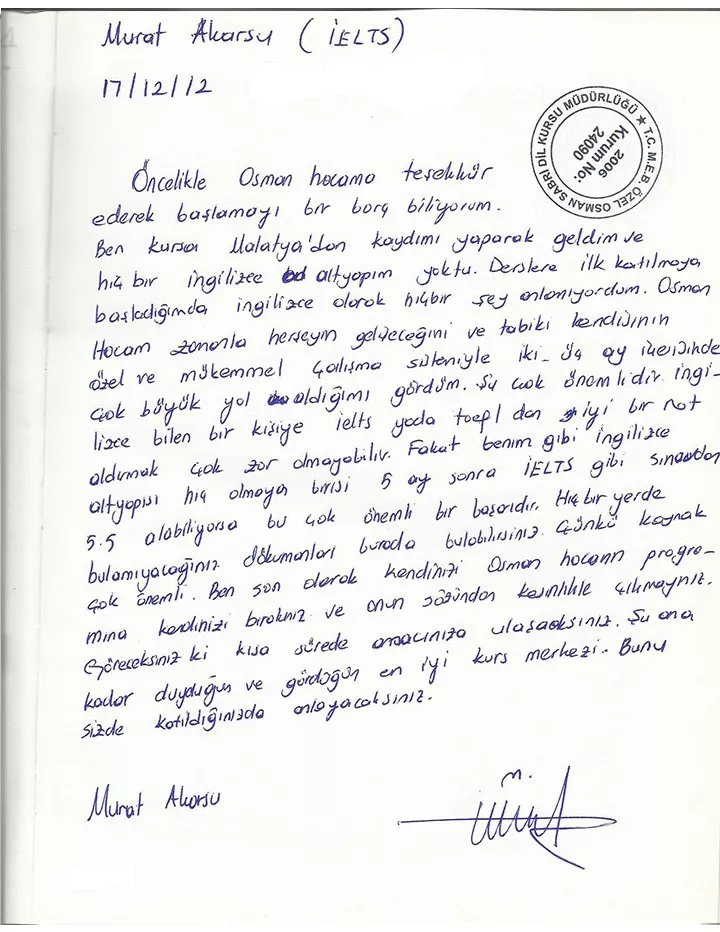 Murat Akarsu ( İELTS)
17/12/12
T.C. M.E.B. ÖZEL OSMAN SABRİ DİL KURSU MÜDÜRLÜĞÜ ★
Kurum No:
24090
2006
Öncelikle Osman hocama teşekkür
ederek başlamayı bir borç biliyorum.
Ben kursa Malatya'dan kaydımı yaparak geldim ve
hiç bir ingilizce altyapım yoktu. Derslere ilk katılmaya
başladığımda ingilizce olarak hiçbir şey anlamıyordum. Osman
Hocam zamanla herşeyin geleceğini ve tabiki kendisinin
özel ve mükemmel çalışma sitemiyle iki-üç ay içerisinde
çok büyük yol aldığımı gördüm. Şu çok önemlidir. ingi-
lizce bilen bir kişiye ielts yada toepl dan iyi bir not
aldırmak çok zor olmayabilir. Fakat benim gibi ingilizce
altyapısı hiç olmayan birisi 5 ay sonra İELTS gibi sınavdan
5.5 alabiliyorsa bu çok önemli bir başarıdır. Hiç bir yerde
bulamıyacağınız dökümanları burada bulabilirsiniz. Çünkü kaynak
çok önemli. Ben son olarak kendinizi Osman hocanın progra-
mına kendinizi bırakınız ve onun sözünden kesinlikle çıkmayınız.
Göreceksiniz ki kısa sürede amacınıza ulaşacaksınız. Şu ana
kadar duyduğum ve gördüğüm en iyi kurs merkezi. Bunu
sizde katıldığınızda anlayacaksınız.
Murat Akarsu